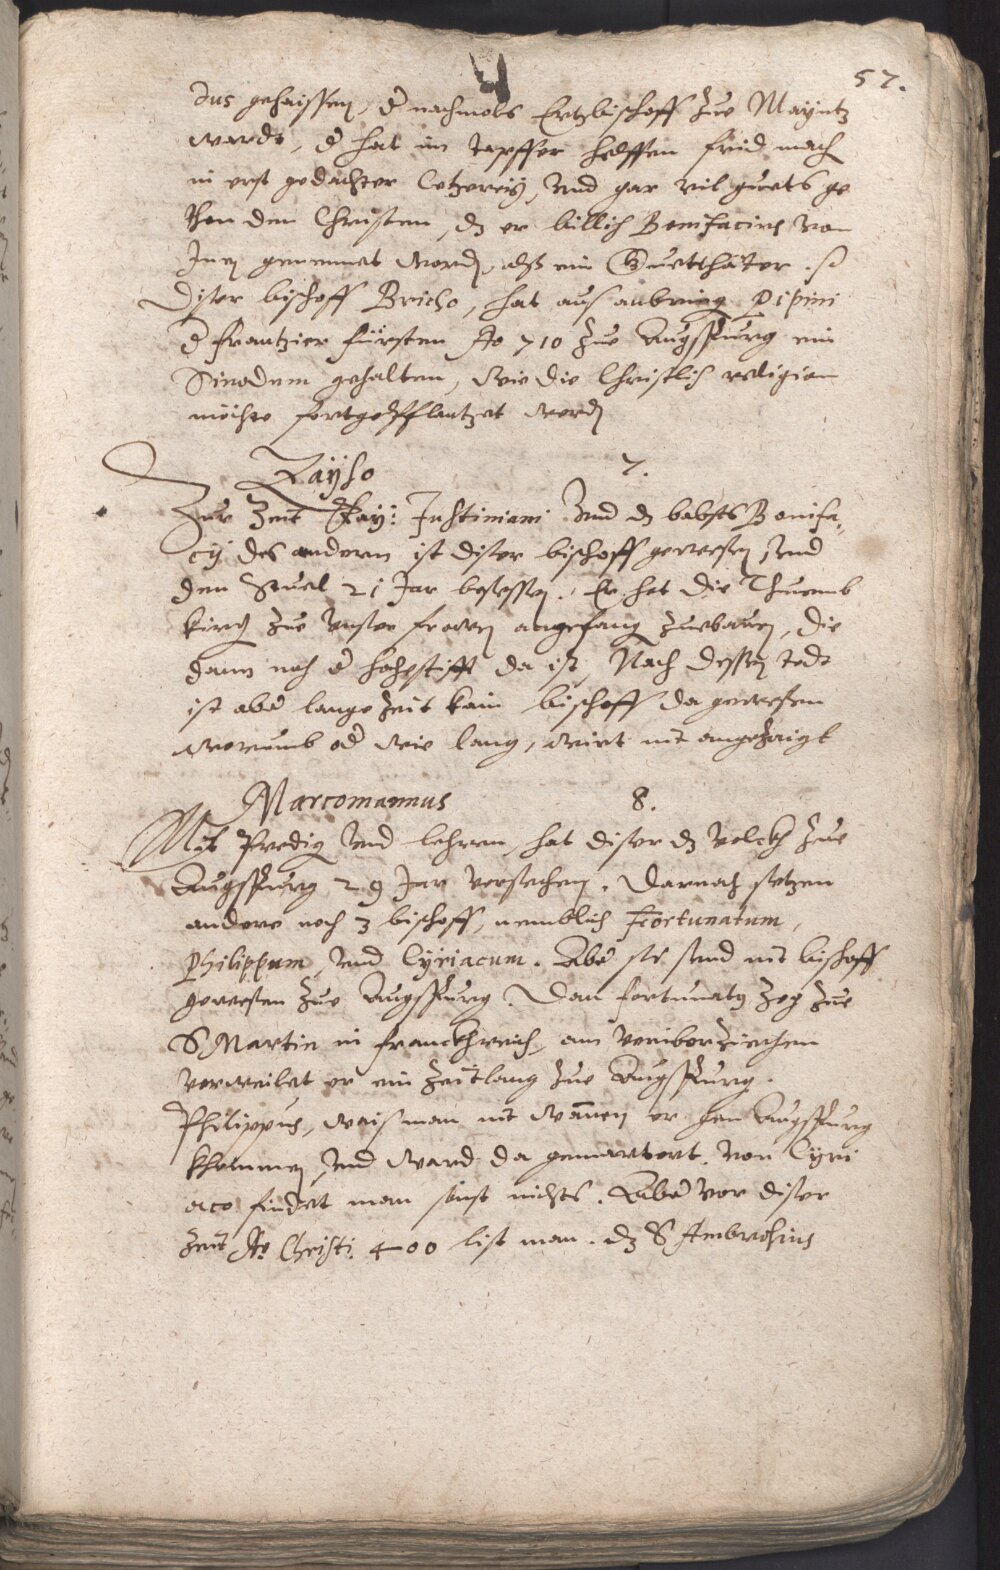 57.
dus gehaissen, d nachmols Ertzbischoff zue Mayntz
wardt, d hat im dapffer helffen frid mach
in erst gedachter Ketzereÿ, und gar vil guets ge
thon den Christen, dz er billich Bonifacius von
Inen genennet worden, alß ein Guetthäter.
Diser bischoff Bricho, hat aus anbring Pipini
d frantzier fürsten Ao 710 zue Augsspurg ein
Sinodum gehalten, wie die Christlich religion
möchte fortgepfflantzet werden
Zayso 7.
Zur Zeit Kay: Justiniani und dz babsts Bonifa
cij des andern ist diser bischoff gewessen, und
den Stuel 21 Jar besessen. Er hat die Thuemb
kirch zue unser frawen angefang zuebauen, die
dann noch d hochstifft da ist, Nach dessen todt
ist aber lange Zeit kain bischoff da gewesen
warumb od wie lang, wirt nit angezaigt
Marcomannus 8.
Mit Predig und lehren hat diser dz volckh zue
Augsspurg 29 Jar versechen. Darnach setzen
andere noch 3 bischoff, nemblich Fortunatum,
Philippum, und Cyriacum. Aber sie send nit bischoff
gewesen zue Augsspurg. Dan fortunatus zog zue
S Martin in franckhreich, am
verweilet er ein Zeitlang zue Augsspurg.
Philippus, wais man nit wannen er gen Augsspurg
khommen, und ward da gemartert. von Cyri
aco findet man sunst nichts. Aber vor diser
Zeit Ao Christi 400 list man. dz S Ambrosius